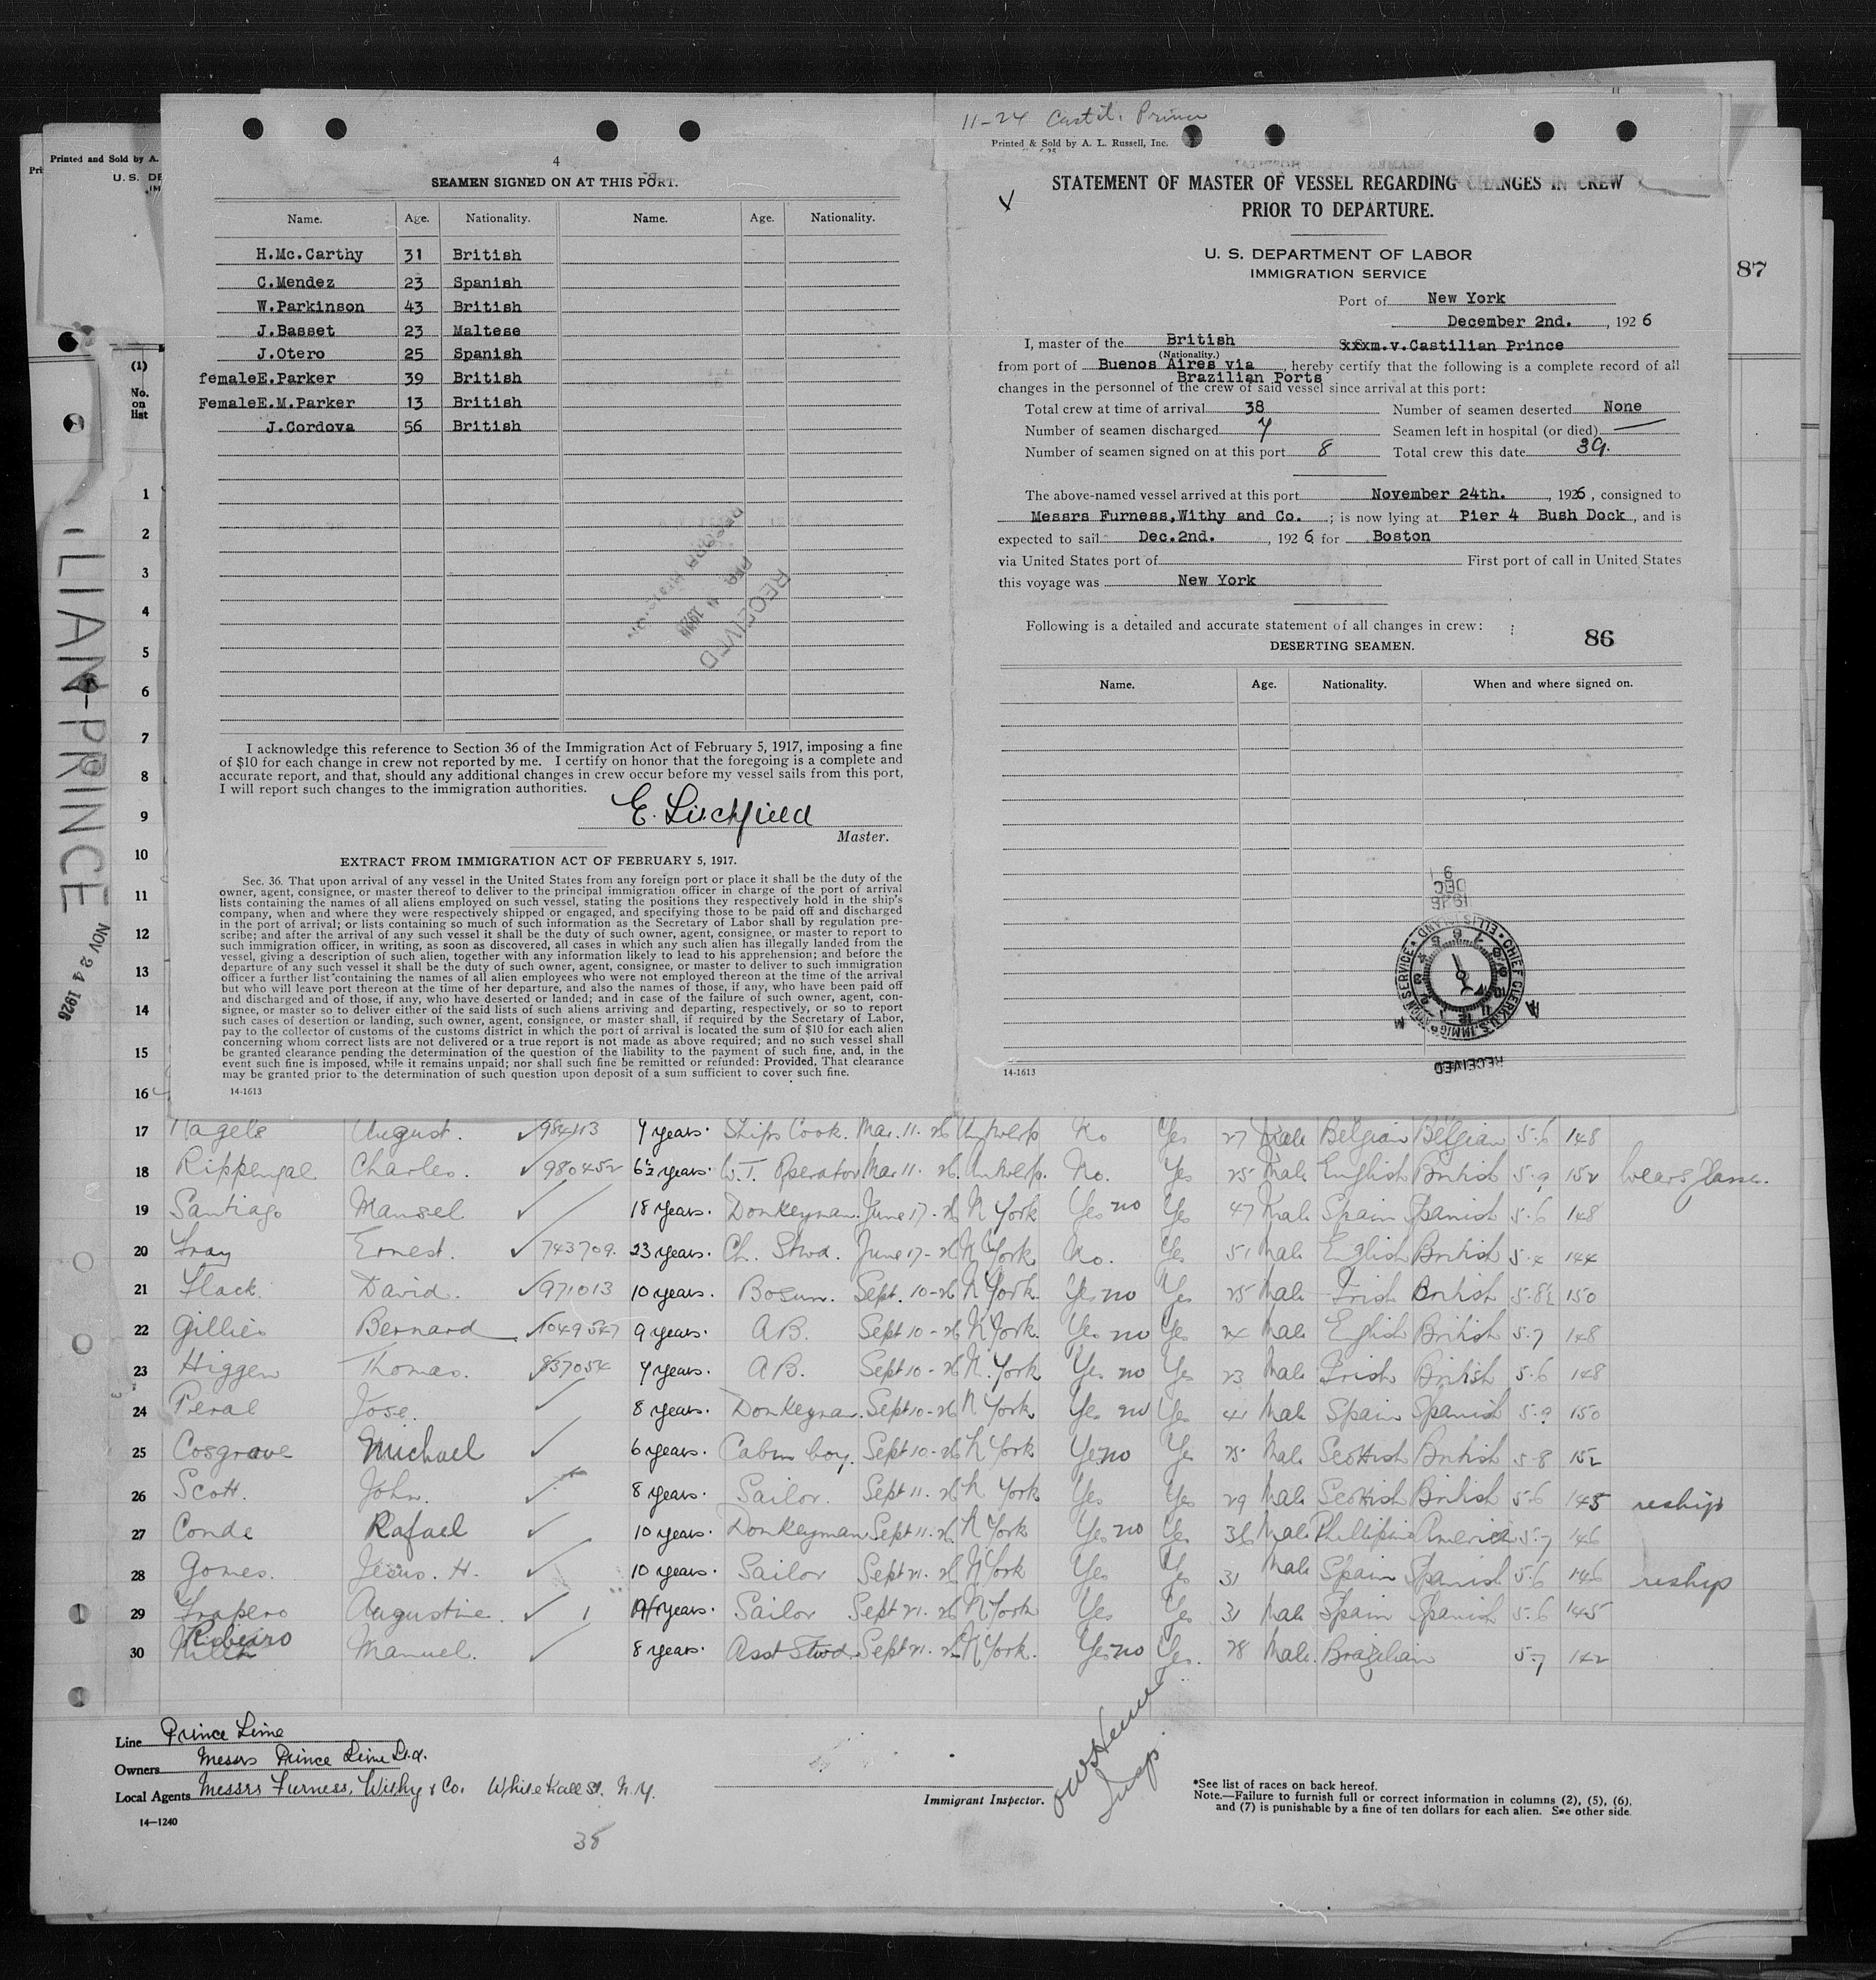 11-24 Castil. Prince
Printed and Sold by A.
U. S. DE
IM
4
SEAMEN SIGNED ON AT THIS PORT.
Name. Age. Nationality. Name. Age. Nationality.
H.Mc.Carthy 31 British
C.Mendez 23 Spanish
W.Parkinson 43 British
J.Basset 23 Maltese
J.Otero 25 Spanish
femaleE.Parker 39 British
FemaleE.M.Parker 13 British
J.Cordova 56 British
RECEIVED
I acknowledge this reference to Section 36 of the Immigration Act of February 5, 1917, imposing a fine
of $10 for each change in crew not reported by me. I certify on honor that the foregoing is a complete and
accurate report, and that, should any additional changes in crew occur before my vessel sails from this port,
I will report such changes to the immigration authorities.
E. Litchfield
Master.
EXTRACT FROM IMMIGRATION ACT OF FEBRUARY 5, 1917.
Sec. 36. That upon arrival of any vessel in the United States from any foreign port or place it shall be the duty of the
owner, agent, consignee, or master thereof to deliver to the principal immigration officer in charge of the port of arrival
lists containing the names of all aliens employed on such vessel, stating the positions they respectively hold in the ship's
company, when and where they were respectively shipped or engaged, and specifying those to be paid off and discharged
in the port of arrival; or lists containing so much of such information as the Secretary of Labor shall by regulation pre-
scribe; and after the arrival of any such vessel it shall be the duty of such owner, agent, consignee, or master to report to
such immigration officer, in writing, as soon as discovered, all cases in which any such alien has illegally landed from the
vessel, giving a description of such alien, together with any information likely to lead to his apprehension; and before the
departure of any such vessel it shall be the duty of such owner, agent, consignee, or master to deliver to such immigration
officer a further list containing the names of all alien employees who were not employed thereon at the time of the arrival
but who will leave port thereon at the time of her departure, and also the names of those, if any, who have been paid off
and discharged and of those, if any, who have deserted or landed; and in case of the failure of such owner, agent, con-
signee, or master so to deliver either of the said lists of such aliens arriving and departing, respectively, or so to report
such cases of desertion or landing, such owner, agent, consignee, or master shall, if required by the Secretary of Labor,
pay to the collector of customs of the customs district in which the port of arrival is located the sum of $10 for each alien
concerning whom correct lists are not delivered or a true report is not made as above required; and no such vessel shall
be granted clearance pending the determination of the question of the liability to the payment of such fine, and, in the
event such fine is imposed, while it remains unpaid; nor shall such fine be remitted or refunded: Provided, That clearance
may be granted prior to the determination of such question upon deposit of a sum sufficient to cover such fine.
14-1613
Printed & Sold by A. L. Russell, Inc.
STATEMENT OF MASTER OF VESSEL REGARDING CHANGES IN CREW
PRIOR TO DEPARTURE.
U. S. DEPARTMENT OF LABOR
IMMIGRATION SERVICE
87
Port of New York
December 2nd. , 1926
I, master of the British xxxm.v.Castilian Prince
(Nationality.)
from port of Buenos Aires via , hereby certify that the following is a complete record of all
Brazilian Ports
changes in the personnel of the crew of said vessel since arrival at this port:
Total crew at time of arrival 38 Number of seamen deserted None
Number of seamen discharged 7 Seamen left in hospital (or died)
Number of seamen signed on at this port 8 Total crew this date 39.
The above-named vessel arrived at this port November 24th. , 1926, consigned to
Messrs Furness,Withy and Co. ; is now lying at Pier 4 Bush Dock , and is
expected to sail Dec.2nd. , 1926 for Boston
via United States port of First port of call in United States
this voyage was New York
Following is a detailed and accurate statement of all changes in crew:
86
DESERTING SEAMEN.
Name. Age. Nationality. When and where signed on.
DEC
1926
CHIEF CLERK U.S. IMMIGRATION SERVICE ELLIS ISLAND
RECEIVED
14-1613
LIAN-PRINCE NOV 24 1926
(1)
No.
on
list
1
2
3
4
5
6
7
8
9
10
11
12
13
14
15
16
17 Nagels August. 984113 7 years. Ships Cook. Mar. 11. 26 Antwerp No Yes 27 Male Belgian Belgian 5.6 148
18 Rippengal Charles. 980452 6½ years. W.T. Operator Mar 11. 26. Antwerp. No. Yes 25 Male English British 5.9 152 Wears Glasses.
19 Santiago Manuel 18 years. Donkeyman. June 17-26 N York Yes no Yes 47 Male Spain Spanish 5.6 148
20 Fray Ernest. 743709. 23 years. Ch. Stwd. June 17-26 N York No. Yes 51 Male English British 5.4 144
21 Flack David. 971013 10 years. Bosun. Sept. 10-26 N York. Yes no Yes 25 Male Irish British 5.8½ 150
22 Gillies Bernard 1049547 9 years. A.B. Sept 10-26 N York. Yes no Yes 24 Male English British 5.7 148
23 Higgen Thomas. 837054 7 years. A.B. Sept 10-26 N. York Yes no Yes 23 Male Irish British 5.6 148
24 Peral Jose. 8 years. Donkeyman. Sept 10-26 N York. Yes no Yes 41 Male Spain Spanish 5.9 150
25 Cosgrove Michael 6 years. Cabin boy. Sept 10-26 N York Yes no Yes 25 Male Scottish British 5.8 152
26 Scott. John. 8 years. Sailor. Sept 11. 26 N York Yes Yes 29 Male Scottish British 5.6 145 reship
27 Conde Rafael 10 years. Donkeyman Sept 11. 26. N York Yes no Yes 36 Male Phillipine America 5.7 146
28 Gomes. Jesus. H. 10 years. Sailor Sept 21. 26 N York Yes Yes 31 Male Spain Spanish 5.6 146 reship
29 Frapero Augustine. 1 years. Sailor Sept 21. 26 N York Yes Yes 31 Male Spain Spanish 5.6 145
30 Ribeiro Manuel. 8 years. Asst Stwd Sept 21. 26 N York. Yes no Yes. 28 Male. Brazilian 5.7 142
Line Prince Line
Owners Messrs Prince Line Ltd.
Local Agents Messrs Furness, Withy & Co. Whitehall St. N.Y.
Immigrant Inspector.
Insp.
*See list of races on back hereof.
Note.—Failure to furnish full or correct information in columns (2), (5), (6),
and (7) is punishable by a fine of ten dollars for each alien. See other side.
14—1240
38